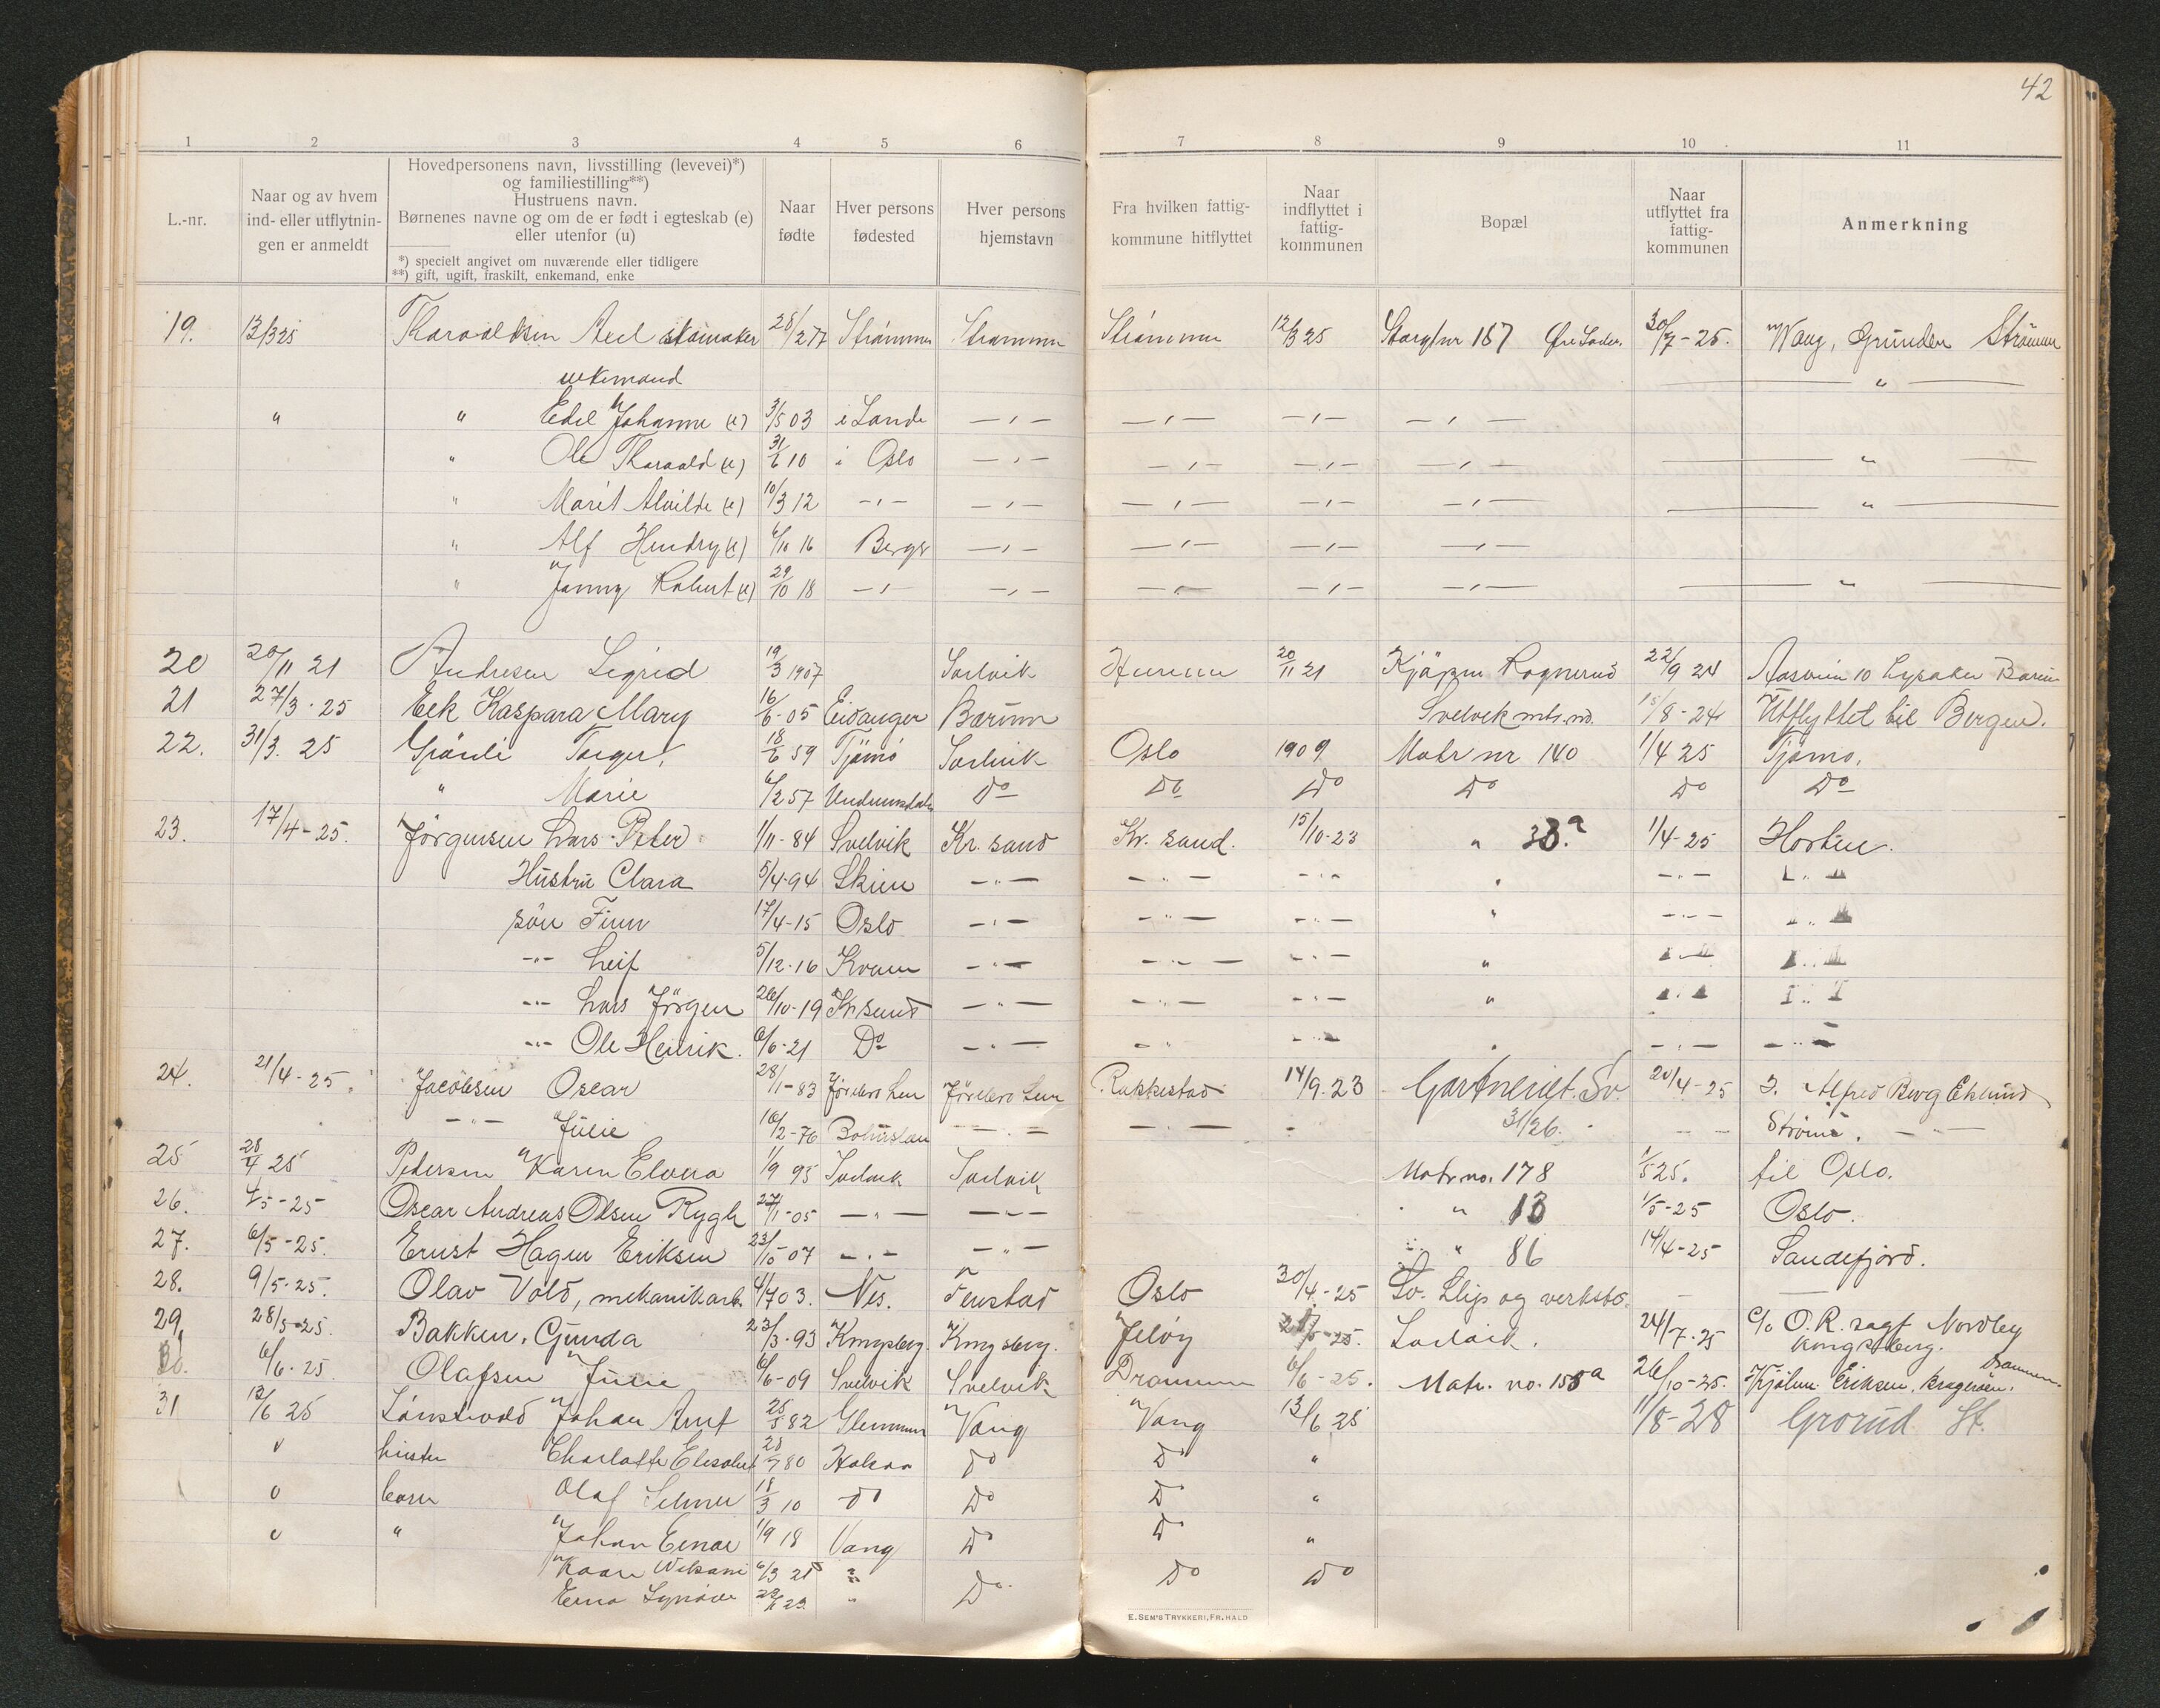 42
1 2 3 4 5 6 7 8 9 10 11
L.-nr.
Naar og av hvem ind- eller utflytnin- gen er anmeldt
Hovedpersonens navn, livsstilling (levevei)*)
og familiestilling**)
Hustruens navn.
Børnenes navne og om de er født i egteskab (e)
eller utenfor (u)
*) specielt angivet om nuværende eller tidligere
**) gift, ugift, fraskilt, enkemand, enke
Naar fødte
Hver persons fødested
Hver persons hjemstavn
Fra hvilken fattig- kommune hitflyttet
Naar indflyttet i fattig- kommunen
Bopæl
Naar utflyttet fra fattig- kommunen
Anmerkning
19. 13/3 25 Tharaldsen Axel skomaker 28/2 77 Strømmen Strømmen Strømmen 12/3 25 Storgt nr 157 30/7-25. Strømm
enkemand "
" " Edel Johanne (e) 3/5 03 i Sande —"— —"— —"— —"—
" Ole Tharald (e) 31/6 10 i Oslo —"— —"— —"— —"— "
" Marit Alvilde (e) 10/3 12 —"— —"— —"— —"— —"— "
" Alf Hendry (e) 6/10 16 Berger —"— —"— —"— —"—
" Jenny Robert (e) 29/10 18 —"— —"— —"— —"— —"— "
20 20/11 21 Andresen Sigrid 19/3 1907 Svelvik Hurum 20/11 21 Kjøpm Rognerud 22/9 24 10 Lysaker Bærum
21 27/3-25 Eek Kaspara Mary 16/6-05 Eidanger Bærum Svelvik mtr. no. 15/8-24 Utflyttet til Bergen.
22. 31/3. 25 Torger 18/6 59 Tjømø Svelvik Oslo 1909 Matr nr 140 1/4 25 Tjømø.
" Marie 6/2 57 Undrumsdal Do Do Do Do Do Do
23. 17/4-25. Jörgensen Lars Peter 1/11-84 Svelvik Kr. sand Kr. sand. 15/10-23 " 33.a 1/4-25 Horten.
Hustru Clara 5/4-94 Skien —"— —"— —"— " —"— —"—
sön Finn 17/4-15 Oslo —"— —"— —"— " —"— —"—
—"— Leif 5/12-16 Kvam —"— —"— —"— " —"— —"—
—"— Lars Jörgen 26/10-19 Kr sund —"— —"— —"— " —"— —"—
—"— Ole Henrik. 6/6-21 Do —"— —"— —"— " —"— —"—
24. 21/4-25. Jacobsen Oscar 28/1-83 Rakkestad 14/9.23 Gartneriet. Sv. 20/4-25 Alfred Berg Eklund
—"— Julie 16/2-76 Bohuslen —"— —"— 31/26. Strømm. —"—
25 28/4 25 Pedersen Karen Elvera 1/9 95 Svelvik Svelvik Matr no. 178 1/5 25. til Oslo.
26. 4/5-25 Oscar Andreas Olsen Rygh 27/1-05 —"— —"— " 13 1/5-25 Oslo.
27. 6/5-25. Ernst Hagen Eriksen 23/10 07 —"— —"— " 86 14/4-25 Sandefjord.
28. 9/5-25. Olav Vold, mekanikarb. 4/7 03. Nes. Oslo 30/4-25 Sv. Slip og verksted.
29. 28/5-25. Bakken, Gunda 23/3-93 Kongsberg. Kongsberg. Jeløy Svelvik. 24/7.25 c/o O. R. Nordby
Kongsberg.
30. 6/6.25 Olafsen Julie 6/6-09 Svelvik Svelvik Drammen 6/6-25. Matr. no. 155a 26/10-25. Eriksen, Bragerøen. Drammen
31 13/6 25 Johan Arnt 25/5 82 Glemmen Vang Vang 13/6 25 11/8-28 Grorud St.
" hustru Charlotte Elisabet 28/7 80 Do Do "
" barn Olaf 18/3 10 Do Do Do "
" " Johan Einar 1/9 18 Vang Do Do "
Kaare 6/3 21 " Do Do Do
Erna Synøve " Do
E. SEM'S TRYKKERI, FR.HALD